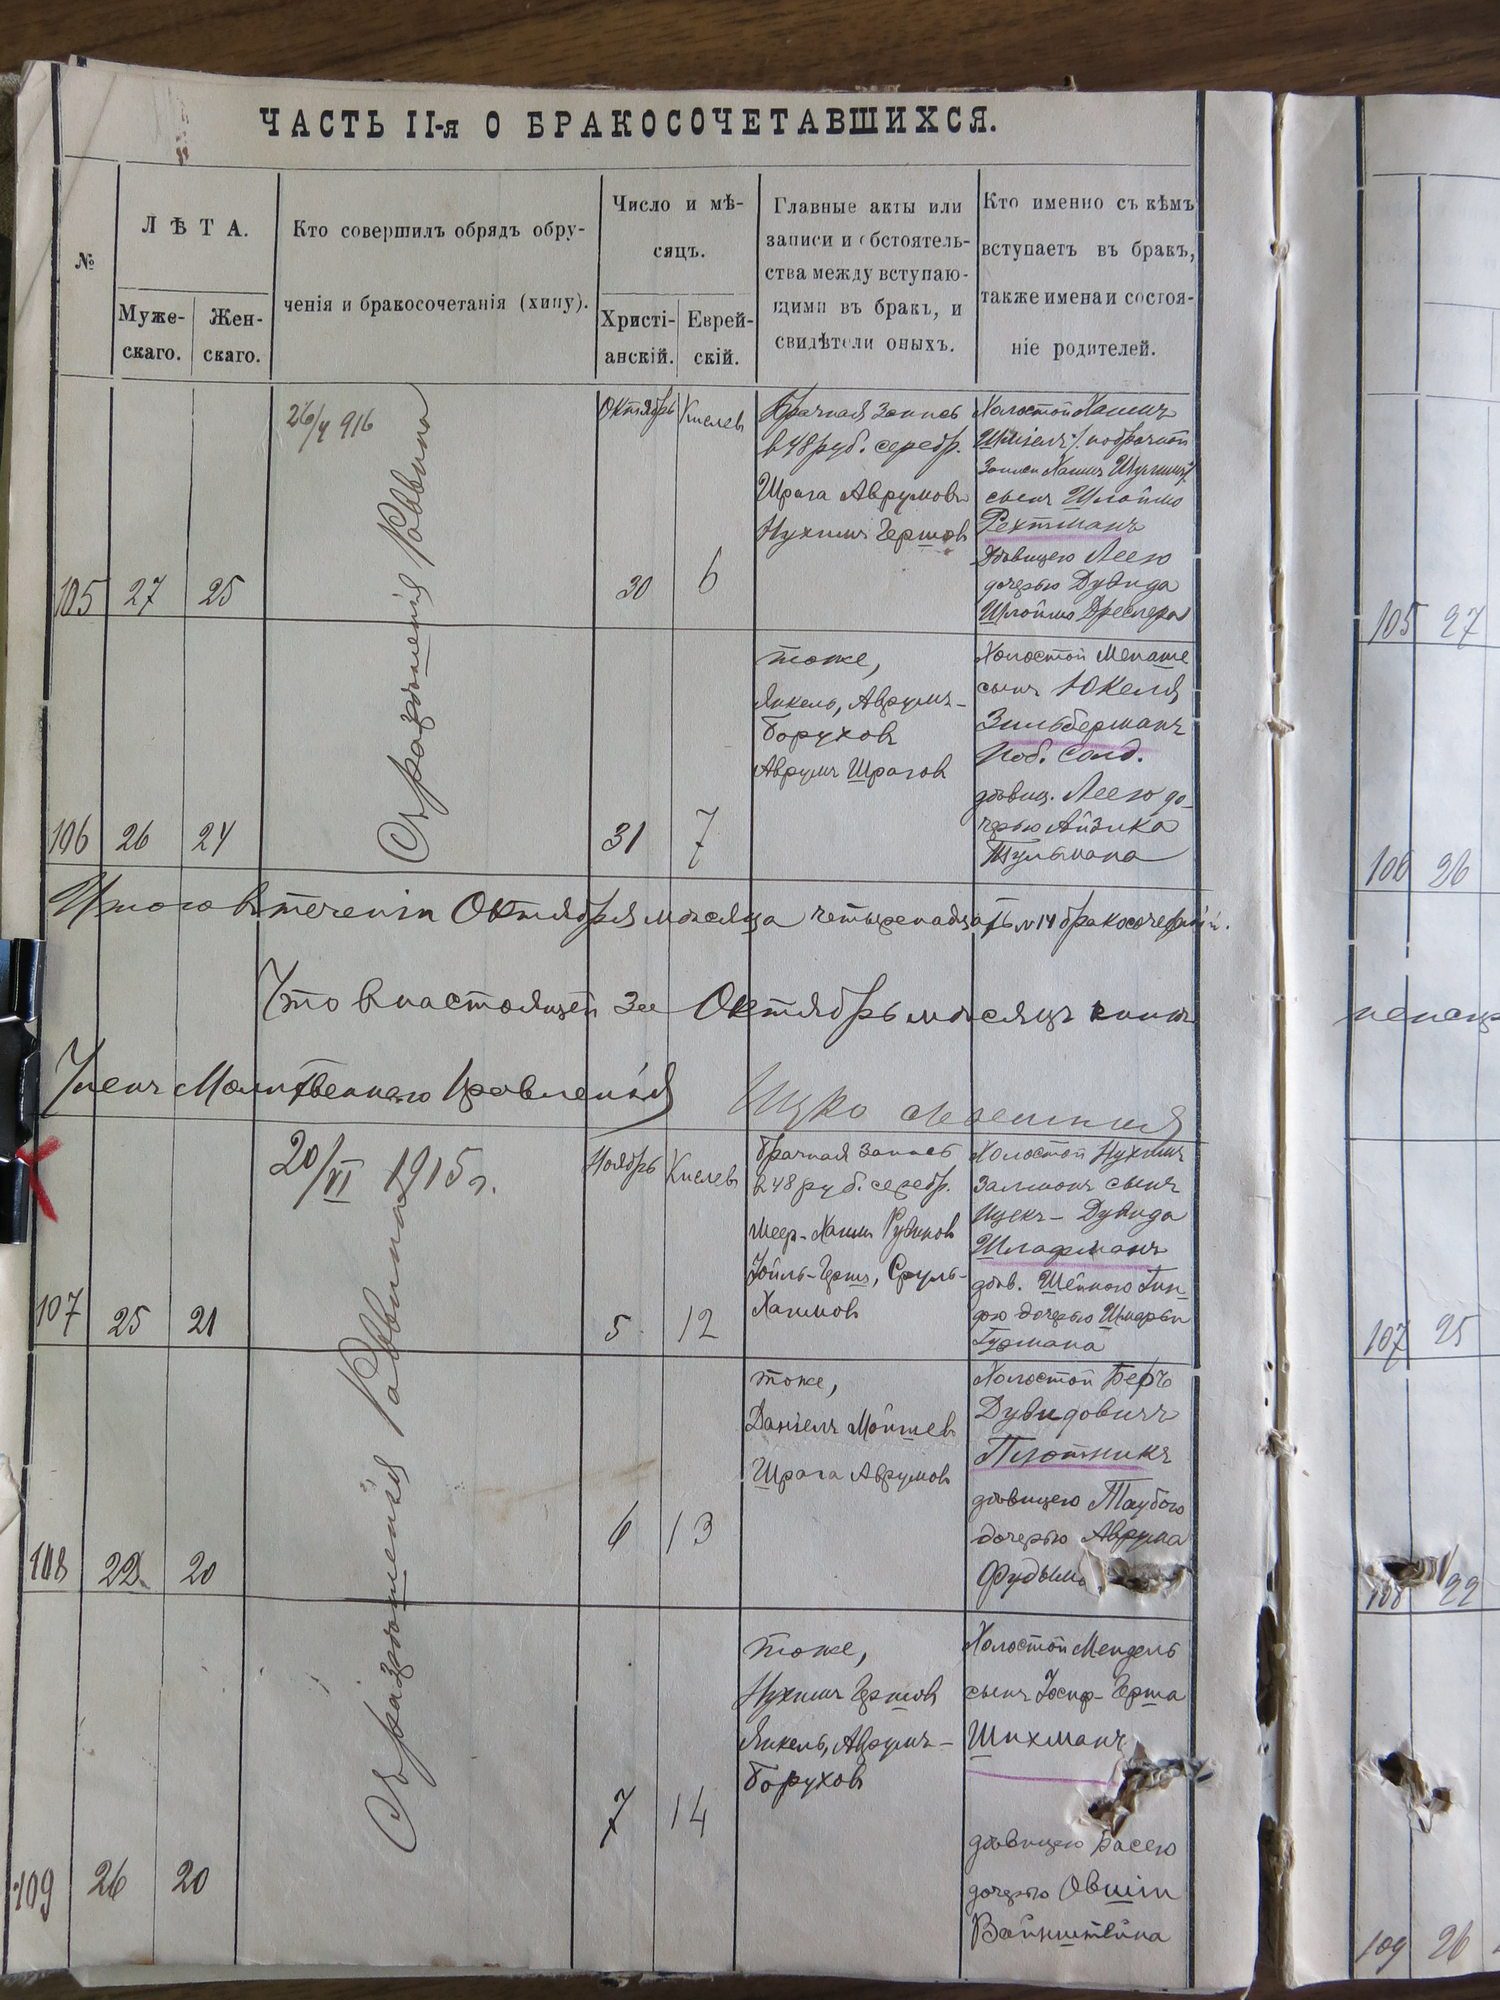 ЧАСТЬ II-я О БРАКОСОЧЕТАВШИХСЯ.
№
ЛѢТА.
Муже-
скаго.
Жен-
скаго.
Кто совершилъ обрядъ обру-
ченія и бракосочетанія (хипу).
Число и мѣ-
сяцъ.
Христі-
анскій.
Еврей-
скій.
Главные акты или
записи и обстоятель-
ства между вступаю-
щими въ бракъ, и
свидѣтели оныхъ.
Кто именно съ кѣмъ
вступаетъ въ бракъ,
также имена и состоя-
ніе родителей.
105
27
25
26/V 916
Съ разрѣшенія Раввина
Октябрь
30
Кислев
6
Брачная запись
в 48 руб. серебр.
Шрага Аврумов
Нухимъ Гершов
Холостой Хаимъ
Шміелъ /. по брачной
записи Хаимъ
сынъ Шлоймо
Рехтманъ
дѣвицею Леею
дочерью Дувида
Шлоймо Дреслера
106
26
24
31
7
тоже,
Янкель, Аврумъ-
Борухов
Аврумъ Шрагов
Холостой Менаше
сынъ Юкеля
Зильберманъ
Поб. Солд.
дѣвиц. Леею до-
черью Айзика
Тульмана
Итого в теченіи Октября мѣсяца четырнадцать № 14 бракосочетаній.
Что в настоящей за Октябрь мѣсяцъ книгѣ
Членъ Молитвеннаго Правленія
107
25
21
20/VI 1915 г.
Съ разрѣшенія Раввина
Ноябрь
5
Кислев
12
брачная запись
в 48 руб. серебр.
Меер-Хаим Рувинов
Іойль-Герш, Сруль-
Хаимов
Холостой Нухим
Залмонъ сынъ
Ицекъ-Дувида
Шлафманъ
дѣв. Шейною Гин-
дою дочерью Шмерки
Гурмана
108
22
20
6
13
тоже,
Даніелъ Мойшев
Шрага Аврумов
Холостой Беръ
Дувидовичъ
Плотникъ
дѣвицею Таубою
дочерью Аврума
Фудыма
109
26
20
7
14
тоже,
Нухимъ Гершов
Янкель, Аврумъ-
Борухов
Холостой Мендель
сынъ Іосиф-Герша
Шихманъ
дѣвицею Басею
дочерью Овшіи
Вайнштейна
105 27
106 26
107 25
108 22
109 26